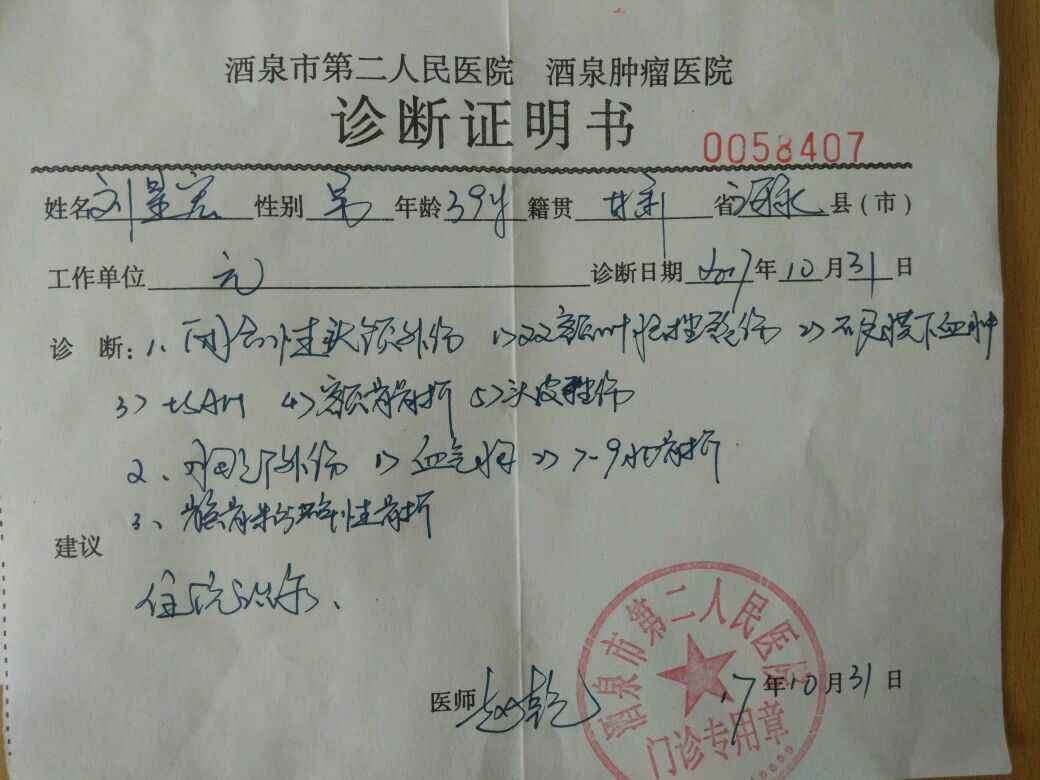 酒泉市第二人民医院 酒泉肿瘤医院
诊断证明书
0058407
姓名 刘景宏 性别 男 年龄 39岁 籍贯 甘肃 省 酒泉 县(市)
工作单位 无 诊断日期 2017年10月31日
诊 断:1、闭合性头颅外伤 1)双额叶脑挫裂伤 2)硬膜下血肿
3)tSAH 4)额骨骨折 5)头皮挫伤
2、胸部外伤 1)血气胸 2)7-9肋骨折
3、髌骨粉碎性骨折
建议
住院治疗、
医师 赵乾 17年10月31日
酒泉市第二人民医院
门诊专用章